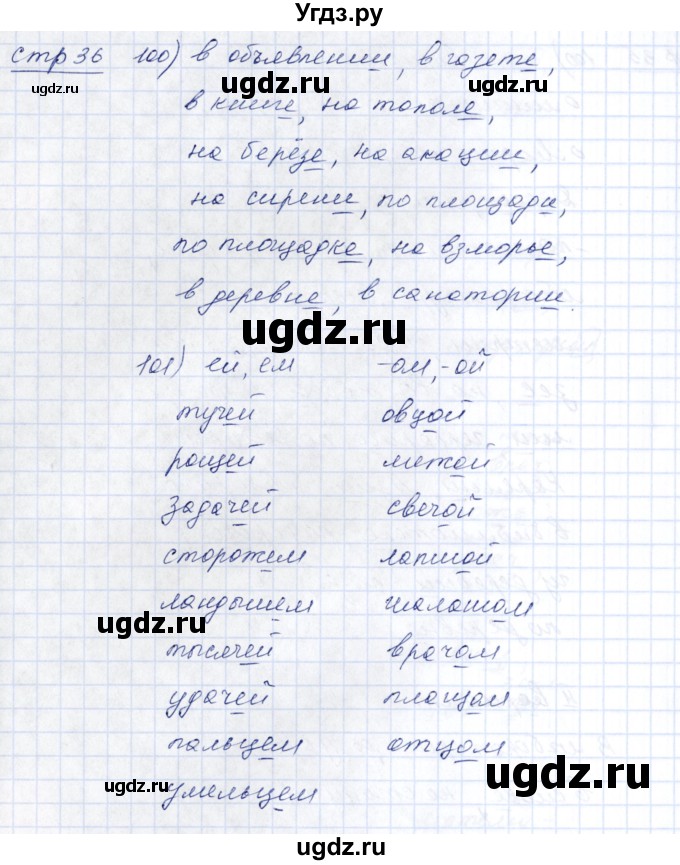 Угдз.ру
стр 36 100) в объявлении, в газете,
ugdz.ru
в книге, на тополе,
ugdz.ru
на берёзе, на акации,
на сирени, по площади,
по площадке, на взморье,
в деревне, в санатории.
ugdz.ru
101) ей, ем -ом, -ой
тучей овцой
рощей межой
задачей свечой
ugdz.ru
сторожем лапшой
ландышем шалашом
ugdz.ru
тысячей врачом
удачей плащом
пальцем отцом
ugdz.ru
умельцем
ugdz.ru